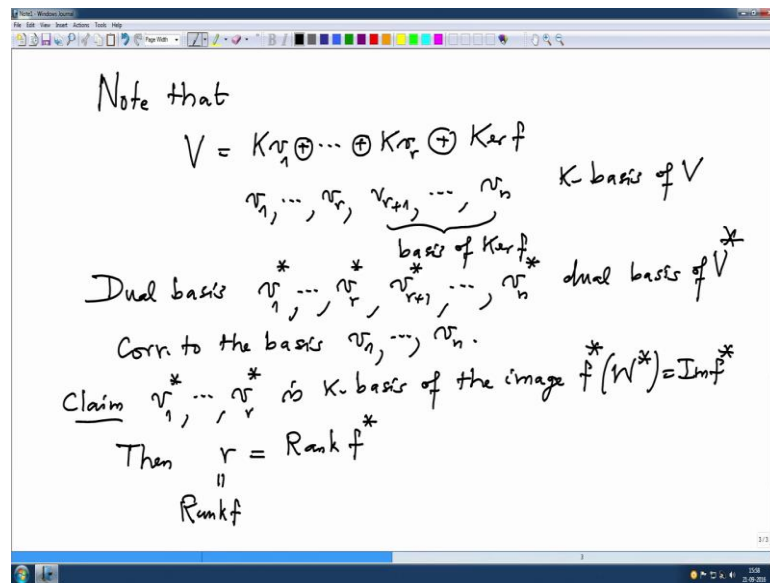 Note1 - Windows Journal
File Edit View Insert Actions Tools Help
Page Width
Note that
V = Kv₁ ⊕ ··· ⊕ Kvᵣ ⊕ Ker f
v₁, ···, vᵣ, vᵣ₊₁, ···, vₙ K-basis of V
basis of Ker f
Dual basis v₁*, ···, vᵣ*, vᵣ₊₁*, ···, vₙ* dual basis of V*
Corr. to the basis v₁, ···, vₙ.
Claim v₁*, ···, vᵣ* is K-basis of the image f*(W*) = Im f*
Then r = Rank f*
||
Rank f
3/3
3
15:58
21-09-2016